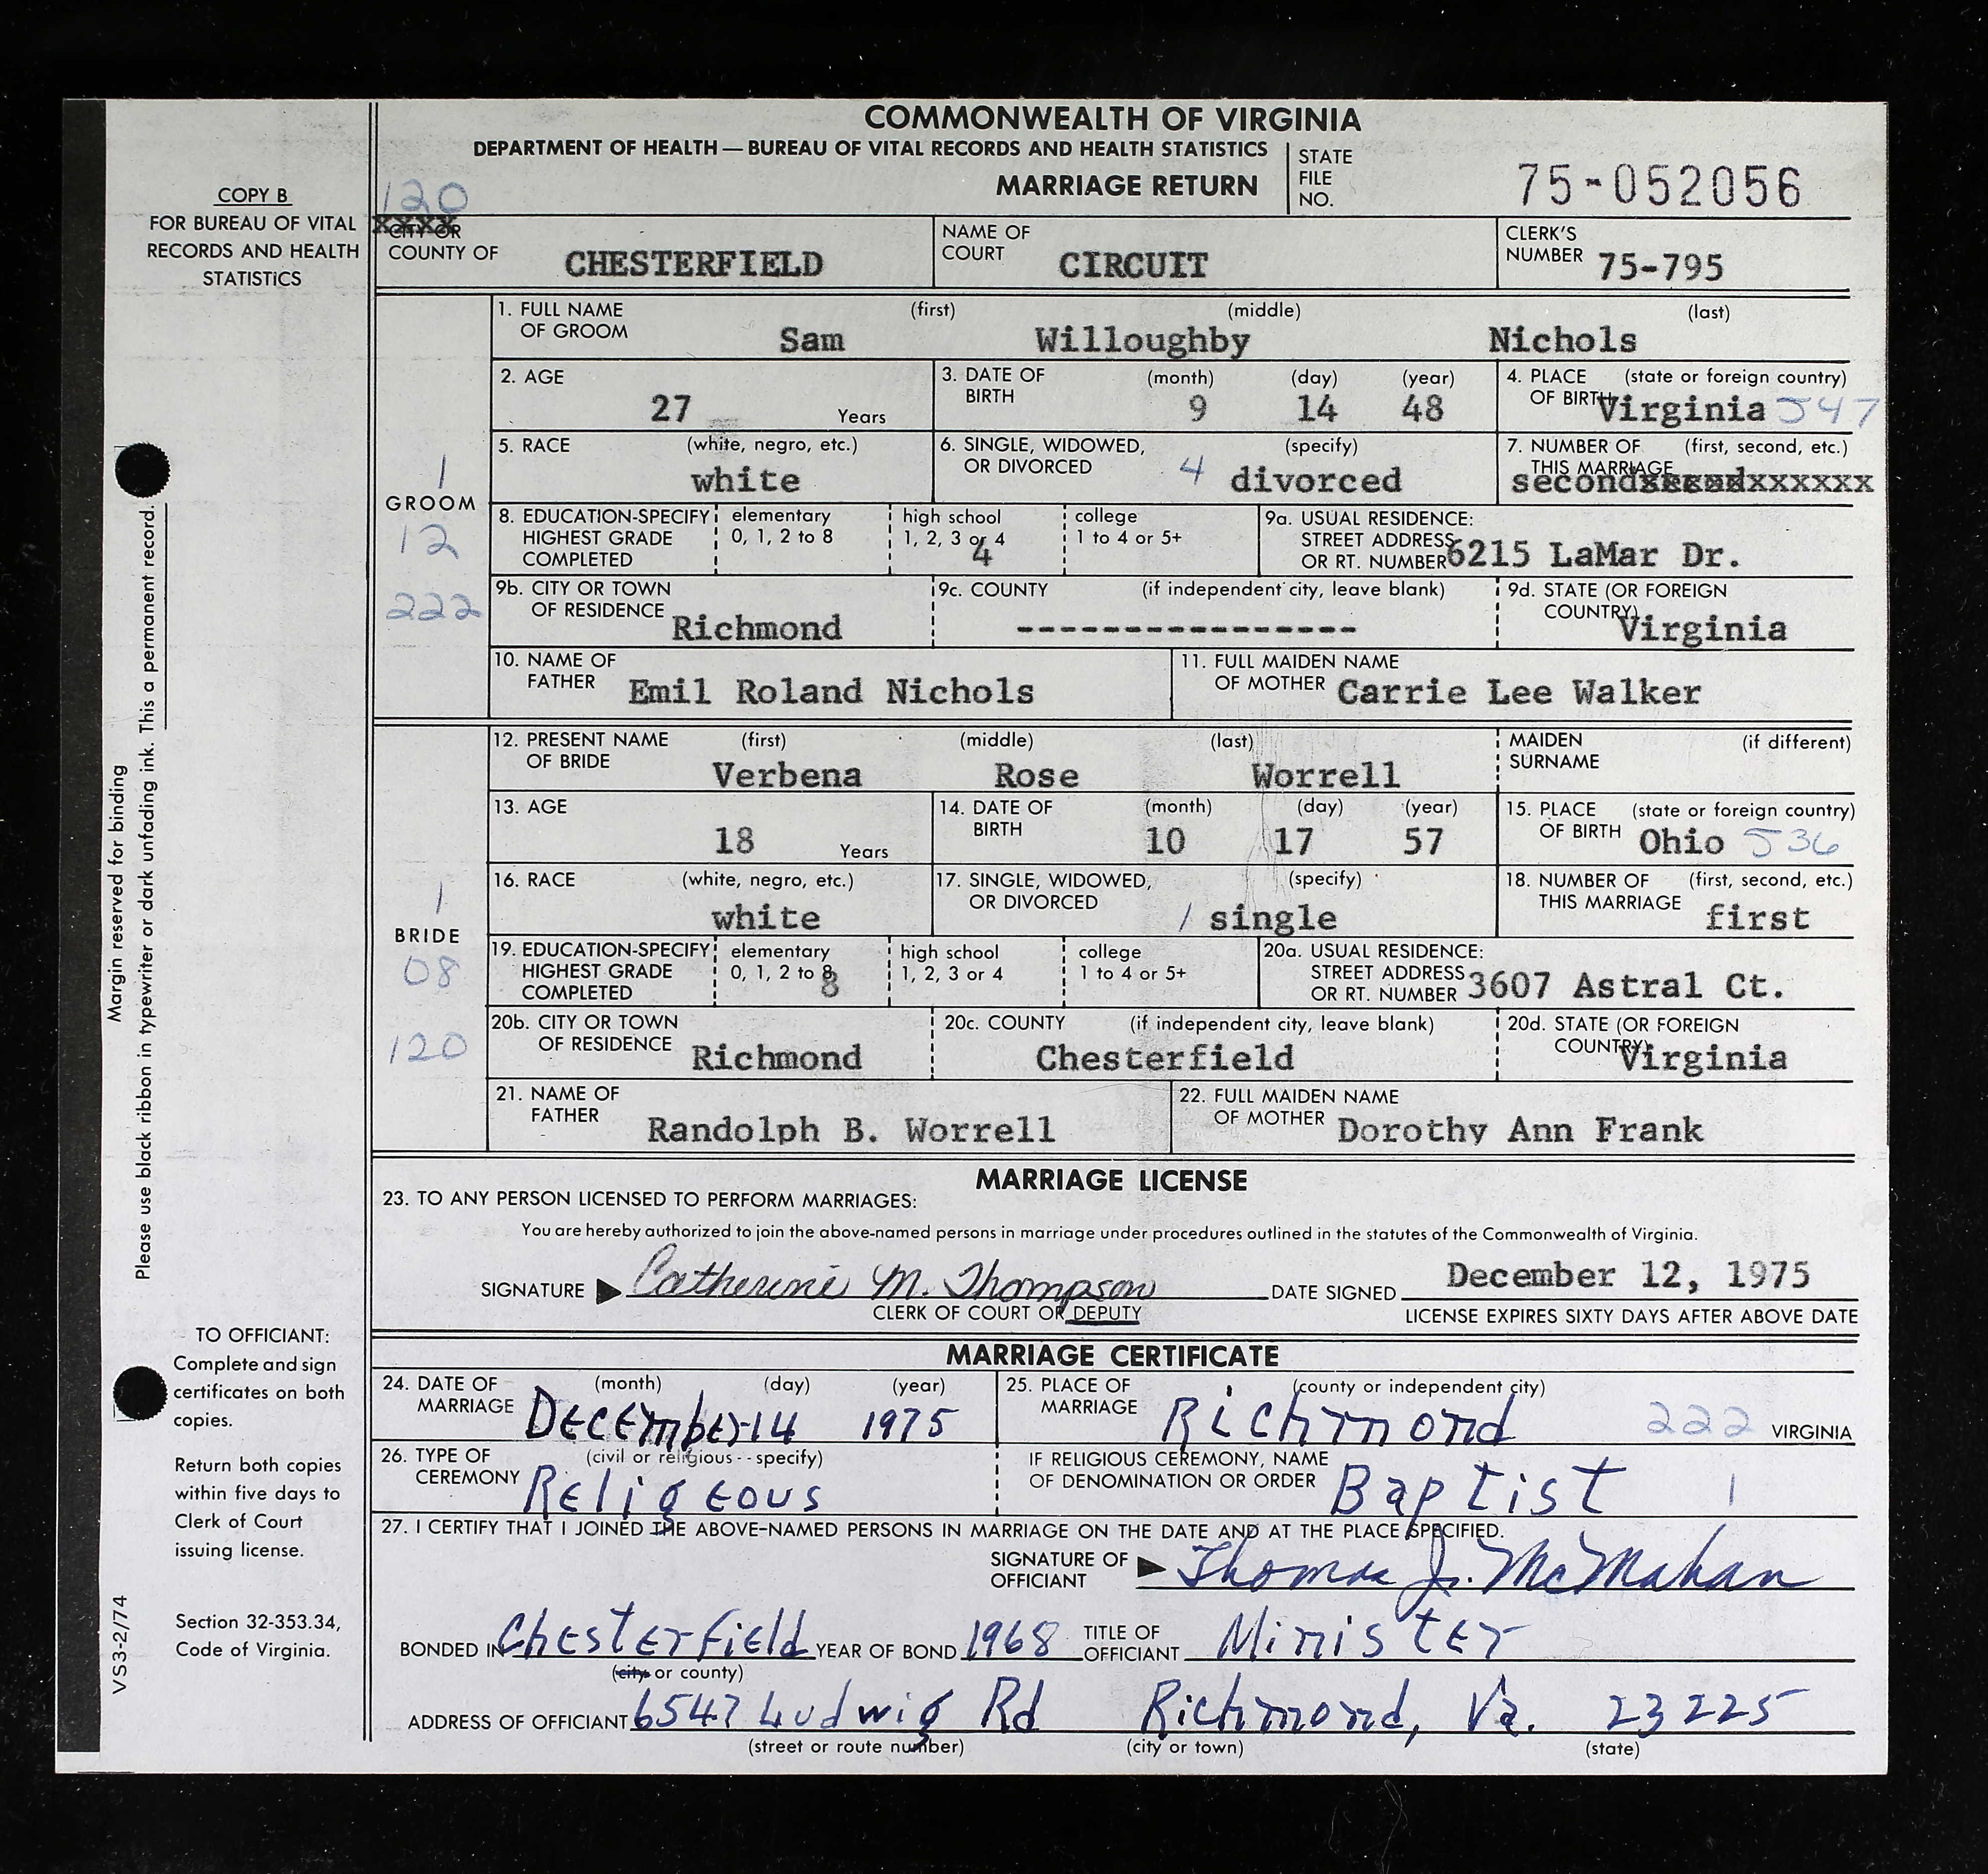 COMMONWEALTH OF VIRGINIA
DEPARTMENT OF HEALTH — BUREAU OF VITAL RECORDS AND HEALTH STATISTICS
MARRIAGE RETURN
STATE FILE NO. 75-052056
COPY B
FOR BUREAU OF VITAL
RECORDS AND HEALTH
STATISTICS
120
XXXX
CITY OR
COUNTY OF CHESTERFIELD
NAME OF COURT CIRCUIT
CLERK'S NUMBER 75-795
1. FULL NAME OF GROOM (first) (middle) (last)
Sam Willoughby Nichols
2. AGE 27 Years
3. DATE OF BIRTH (month) (day) (year) 9 14 48
4. PLACE OF BIRTH (state or foreign country) Virginia 547
1
GROOM
12
222
5. RACE (white, negro, etc.) white
6. SINGLE, WIDOWED, OR DIVORCED (specify) 4 divorced
7. NUMBER OF THIS MARRIAGE (first, second, etc.) second
8. EDUCATION-SPECIFY HIGHEST GRADE COMPLETED
elementary 0, 1, 2 to 8
high school 1, 2, 3 or 4 4
college 1 to 4 or 5+
9a. USUAL RESIDENCE: STREET ADDRESS OR RT. NUMBER 6215 LaMar Dr.
9b. CITY OR TOWN OF RESIDENCE Richmond
9c. COUNTY (if independent city, leave blank) ----------------
9d. STATE (OR FOREIGN COUNTRY) Virginia
10. NAME OF FATHER Emil Roland Nichols
11. FULL MAIDEN NAME OF MOTHER Carrie Lee Walker
12. PRESENT NAME OF BRIDE (first) (middle) (last)
Verbena Rose Worrell
MAIDEN SURNAME (if different)
13. AGE 18 Years
14. DATE OF BIRTH (month) (day) (year) 10 17 57
15. PLACE OF BIRTH (state or foreign country) Ohio 536
1
BRIDE
08
120
16. RACE (white, negro, etc.) white
17. SINGLE, WIDOWED, OR DIVORCED (specify) 1 single
18. NUMBER OF THIS MARRIAGE (first, second, etc.) first
19. EDUCATION-SPECIFY HIGHEST GRADE COMPLETED
elementary 0, 1, 2 to 8 8
high school 1, 2, 3 or 4
college 1 to 4 or 5+
20a. USUAL RESIDENCE: STREET ADDRESS OR RT. NUMBER 3607 Astral Ct.
20b. CITY OR TOWN OF RESIDENCE Richmond
20c. COUNTY (if independent city, leave blank) Chesterfield
20d. STATE (OR FOREIGN COUNTRY) Virginia
21. NAME OF FATHER Randolph B. Worrell
22. FULL MAIDEN NAME OF MOTHER Dorothy Ann Frank
MARRIAGE LICENSE
23. TO ANY PERSON LICENSED TO PERFORM MARRIAGES:
You are hereby authorized to join the above-named persons in marriage under procedures outlined in the statutes of the Commonwealth of Virginia.
SIGNATURE Catherine M. Thompson DATE SIGNED December 12, 1975
CLERK OF COURT OR DEPUTY LICENSE EXPIRES SIXTY DAYS AFTER ABOVE DATE
MARRIAGE CERTIFICATE
24. DATE OF MARRIAGE (month) (day) (year) DECEmbEr 14 1975
25. PLACE OF MARRIAGE (county or independent city) Richmond 222 VIRGINIA
26. TYPE OF CEREMONY (civil or religious--specify) REligEous
IF RELIGIOUS CEREMONY, NAME OF DENOMINATION OR ORDER Baptist 1
27. I CERTIFY THAT I JOINED THE ABOVE-NAMED PERSONS IN MARRIAGE ON THE DATE AND AT THE PLACE SPECIFIED.
SIGNATURE OF OFFICIANT Thomas J. McMahan
BONDED IN ChEstErfiEld YEAR OF BOND 1968 TITLE OF OFFICIANT MinistEr
(city or county)
ADDRESS OF OFFICIANT 6547 Ludwig Rd Richmond, Va. 23225
(street or route number) (city or town) (state)
Margin reserved for binding
Please use black ribbon in typewriter or dark unfading ink. This a permanent record.
TO OFFICIANT:
Complete and sign
certificates on both
copies.
Return both copies
within five days to
Clerk of Court
issuing license.
Section 32-353.34,
Code of Virginia.
VS3-2/74